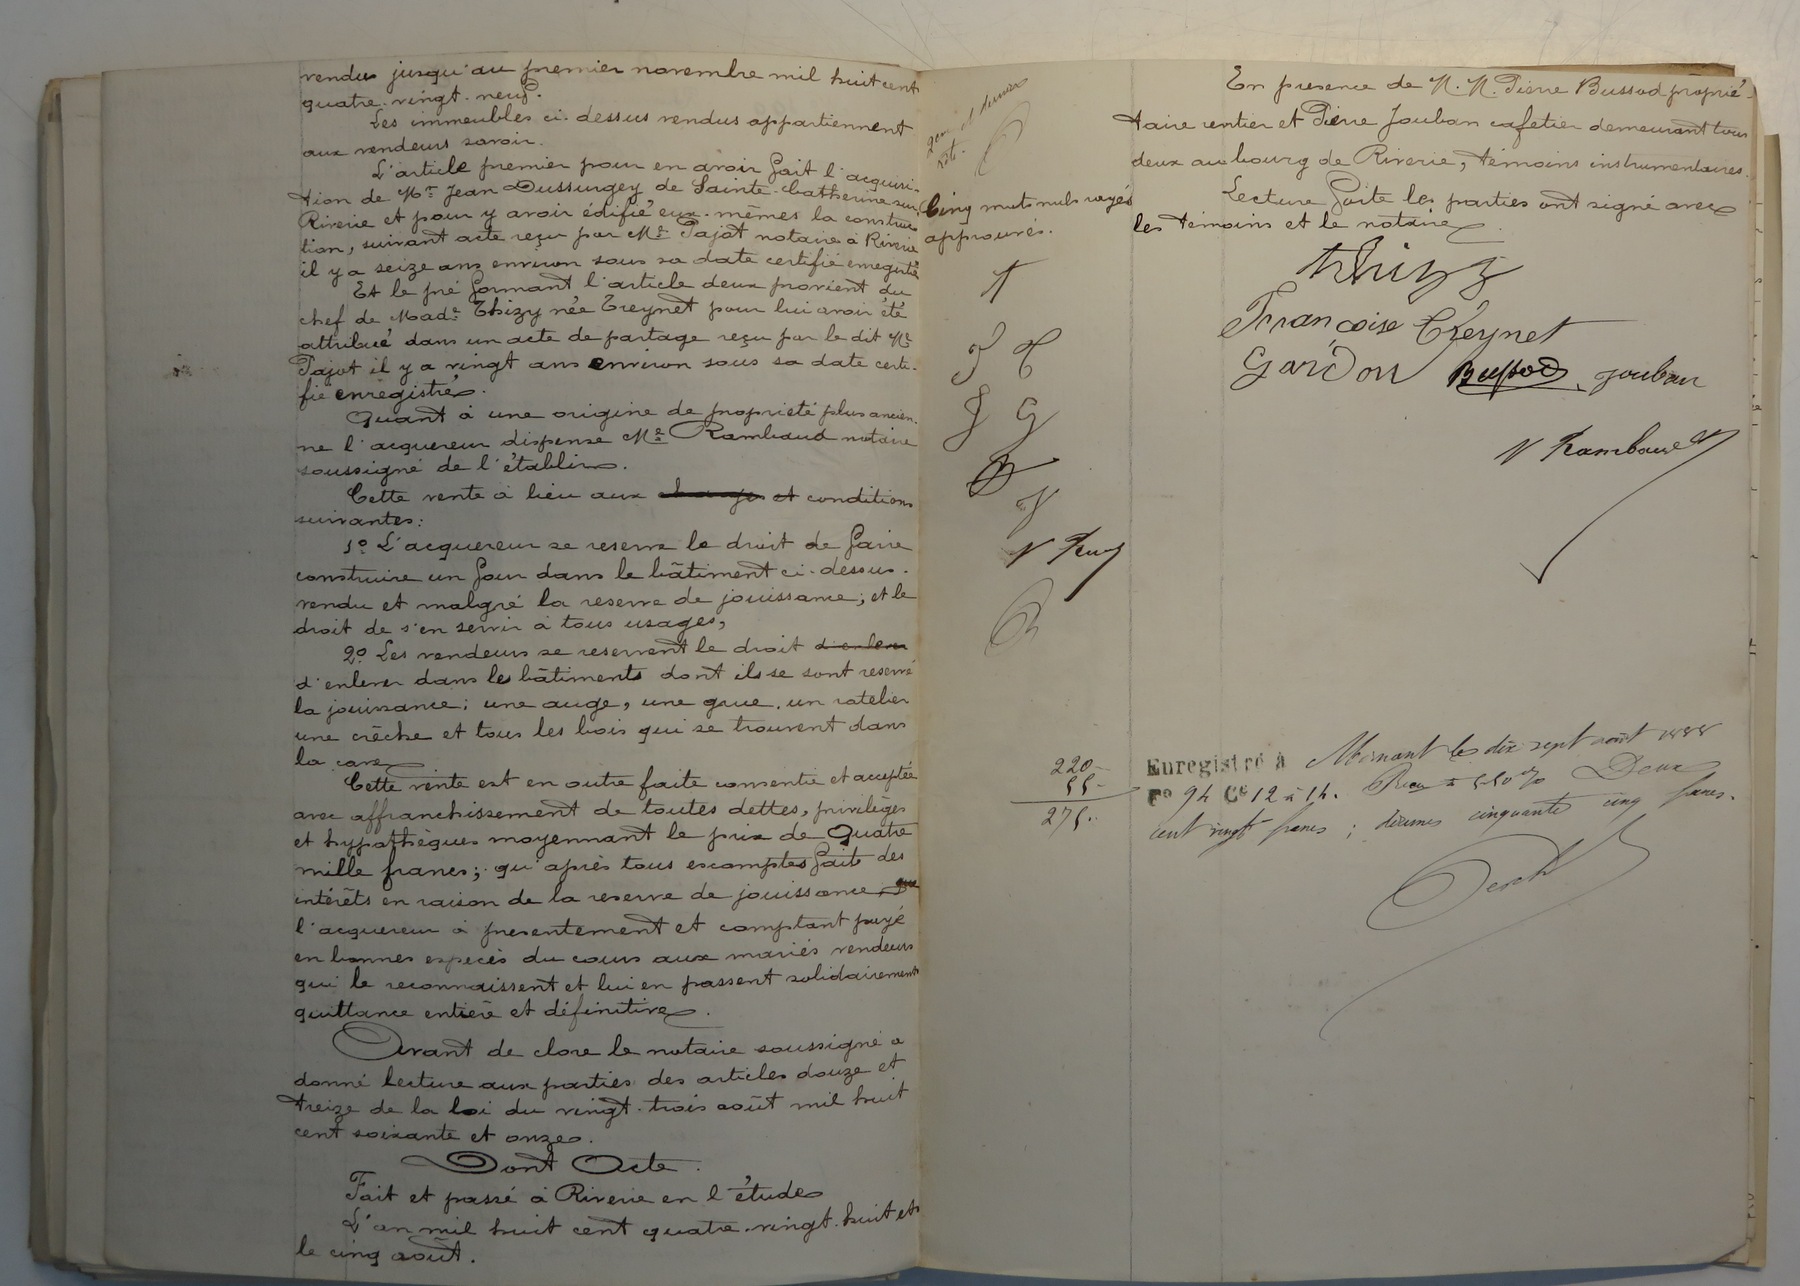 vendus jusqu'au premier novembre mil huit cent
quatre-vingt-neuf.
Les immeubles ci-dessus vendus appartiennent
aux vendeurs savoir.
L'article premier pour en avoir fait l'acquisi-
tion de Mr Jean Dussurgey de Sainte-Catherine sur
Riverie et pour y avoir édifié eux-mêmes la construc
tion, suivant acte reçu par Me Pajot notaire à Riverie
il y a seize ans environ sous sa date certifié enregistré
Et le pré formant l'article deux provient du
chef de Made Thizy née Treynet pour lui avoir été
attribué dans un acte de partage reçu par le dit Me
Pajot il y a vingt ans environ sous sa date certi-
fié enregistré.
Quant à une origine de propriété plus ancien-
ne l'acquereur dispense Me Rambaud notaire
soussigné de l'établir.
Cette vente à lieu aux charges et conditions
suivantes:
1o L'acquereur se reserve le droit de faire
construire un four dans le bâtiment ci-dessus-
vendu et malgré la reserve de jouissance; et le
droit de s'en servir à tous usages,
2o Les vendeurs se reservent le droit d'enlever
d'enlever dans les bâtiments dont ils se sont reservé
la jouissance: une auge, une grue, un ratelier
une crèche et tous les bois qui se trouvent dans
la cave
Cette vente est en outre faite consentie et acceptée
avec affranchissement de toutes dettes, privilèges
et hypothèques moyennant le prix de Quatre
mille francs; qu'après tous escomptes faits des
intérêts en raison de la reserve de jouissance que
l'acquereur à presentement et comptant payé
en bonnes espèces du cours aux mariés vendeurs
qui le reconnaissent et lui en passent solidairement
quittance entière et définitive.
Avant de clore le notaire soussigné a
donné lecture aux parties des articles douze et
treize de la loi du vingt-trois août mil huit
cent soixante et onze.
Dont Acte.
Fait et passé à Riverie en l'étude
L'an mil huit cent quatre-vingt-huit et
le cinq août.
2em et dernier
rôt.
Cinq mots nuls rayés
approuvés.
T
F T
J G
B
J
N Ram
En presence de M. M. Pierre Bussod proprié-
taire rentier et Pierre Jouban cafetier demeurant tous
deux au bourg de Riverie, témoins instrumentaires.
Lecture faite les parties ont signé avec
les témoins et le notaire.
thizy
Françoise Treynet
Gardon Bussod Jouban
N Rambaud
220-
55-
275..
Enregistré à Mornant le dix sept août 1888
Fo 94 Co 12 à 14. Reçu à 5.50 % Deux
cent vingt francs; décimes cinquante cinq francs.